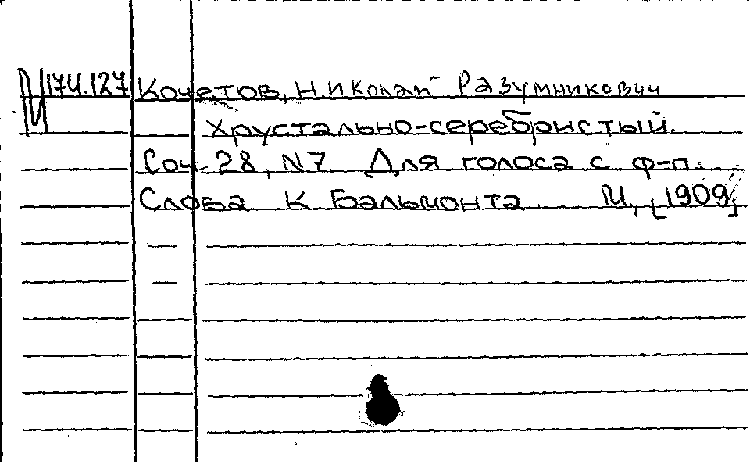 М 174.127 Кочетов, Николай Разумникович
Хрустально-серебристый.
Соч. 28, N7 Для голоса с ф-п.
Слова К Бальмонта М., [1909]